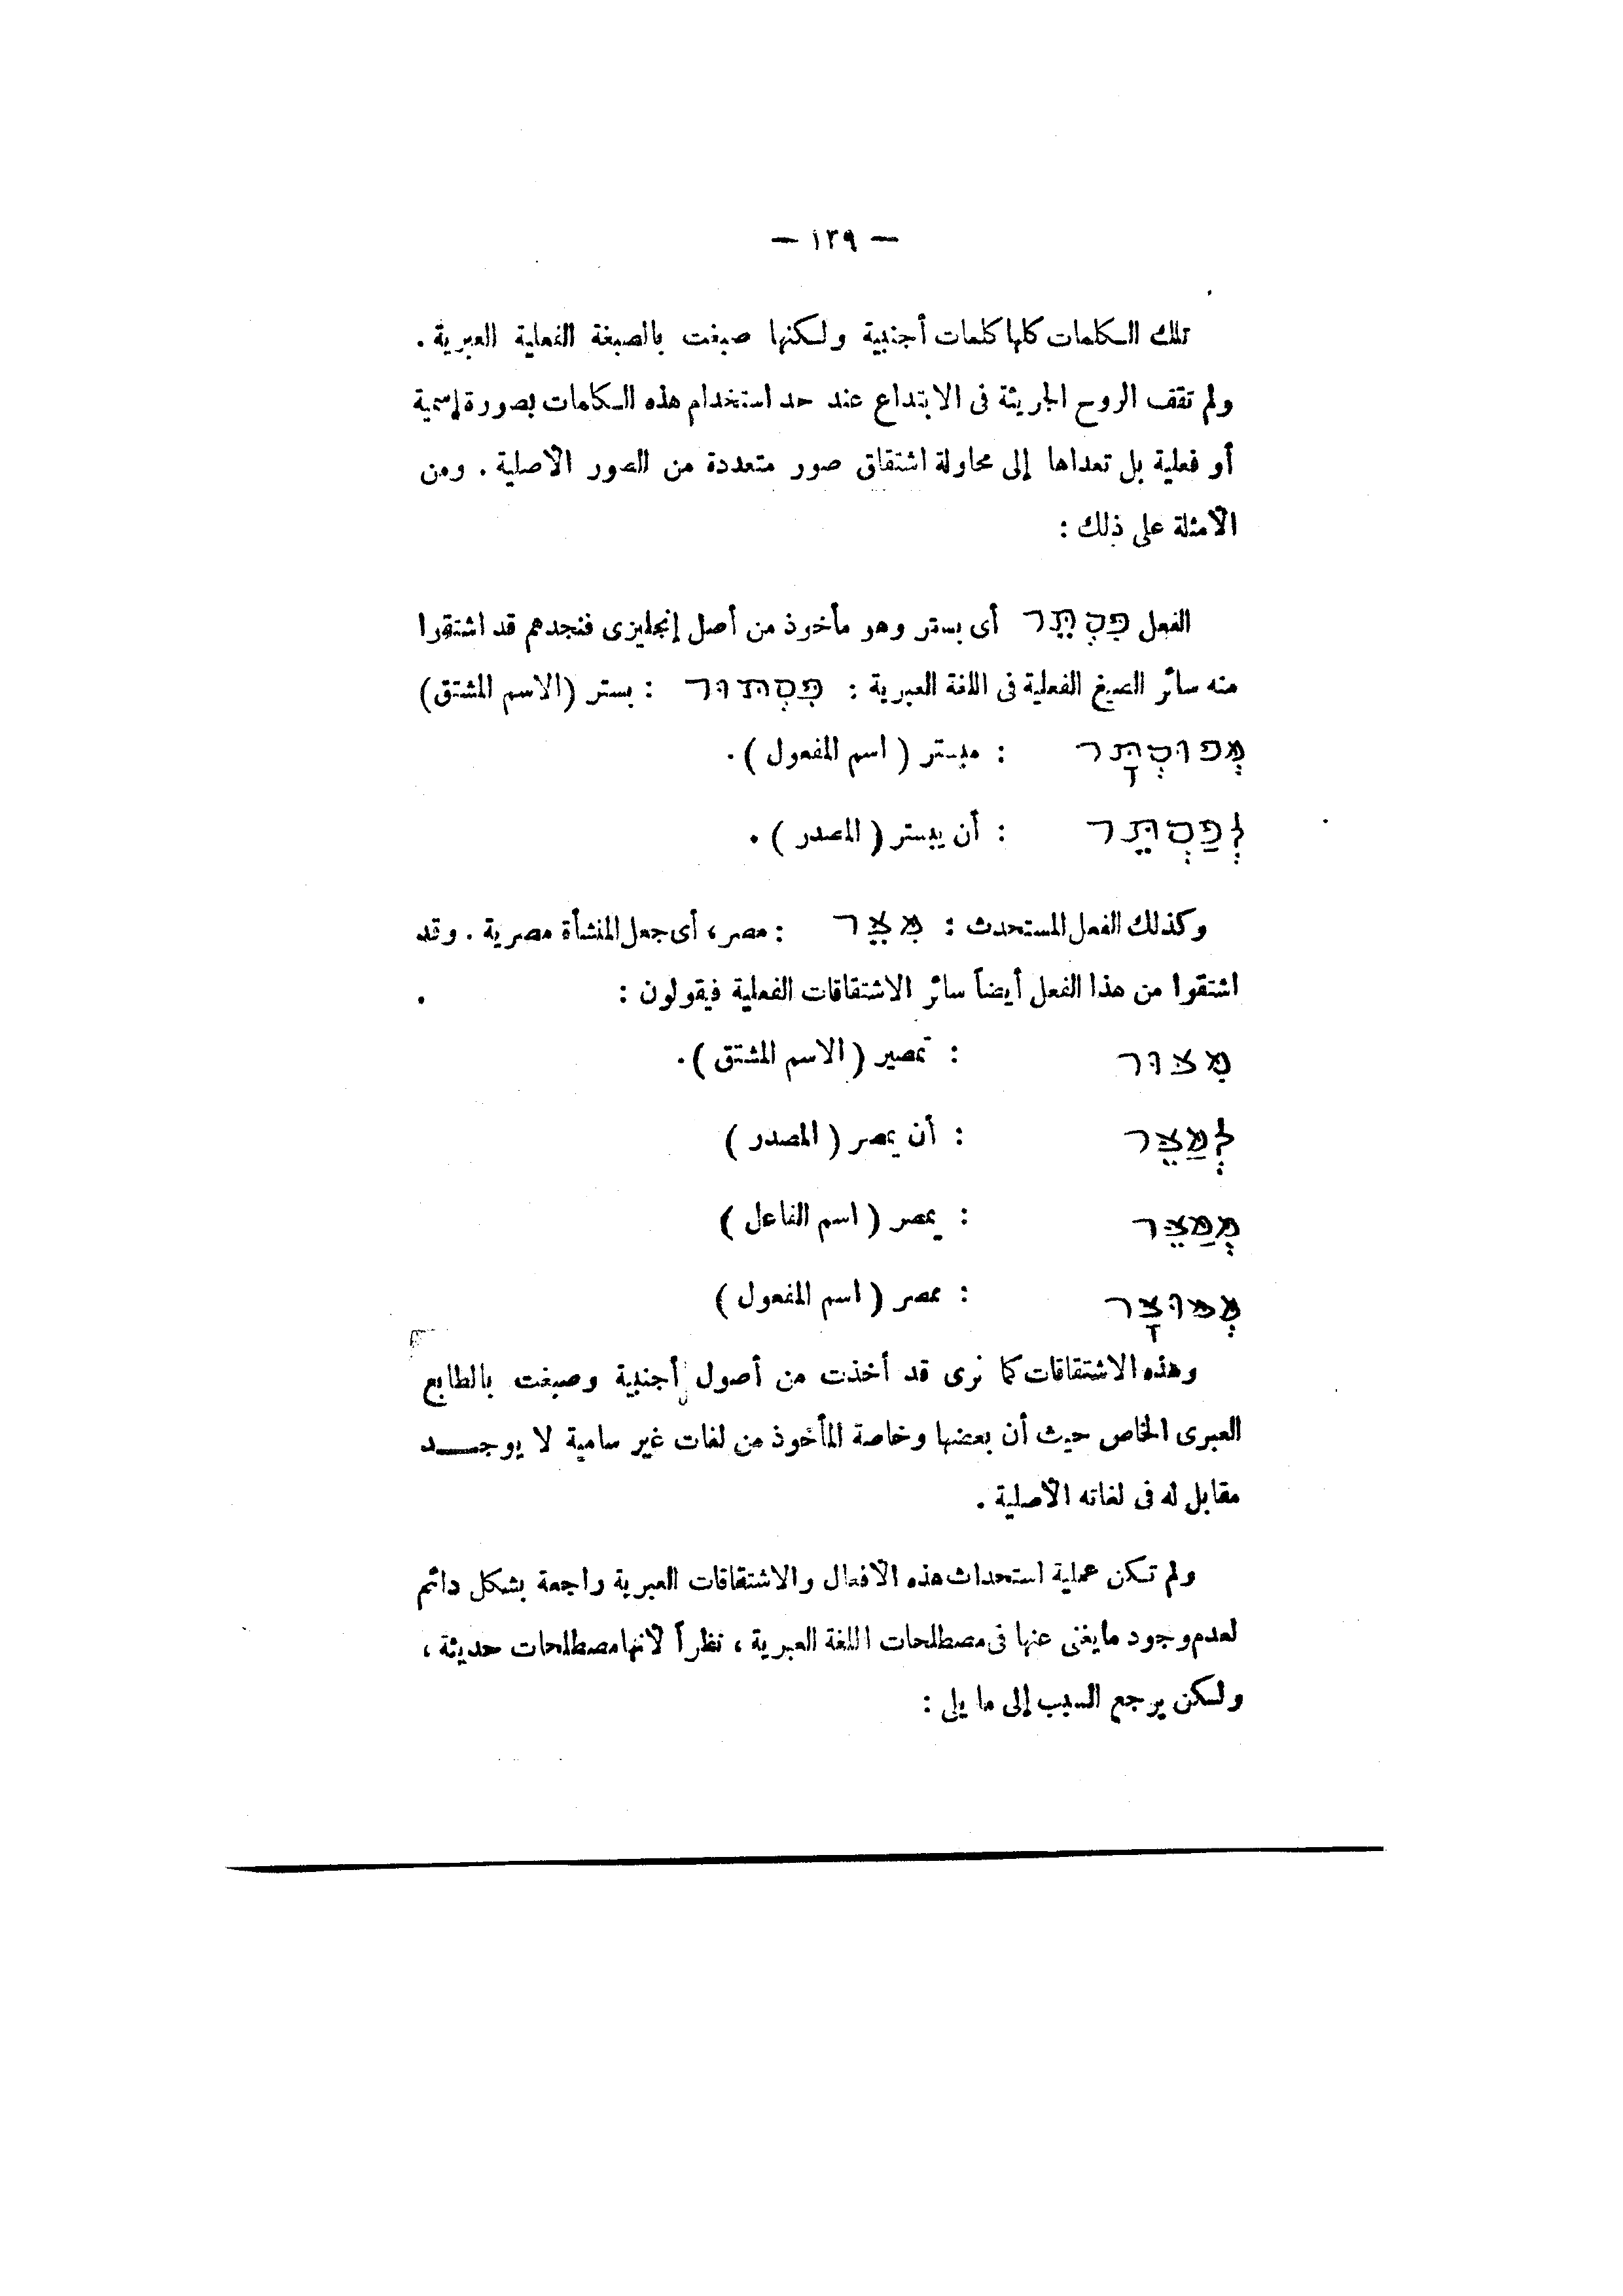 — ١٣٩ —
تلك الكلمات كلها كلمات أجنبية ولكنها صبغت بالصبغة الفعلية العبرية .
ولم تقف الروح الجريئة فى الابتداع عند حد استخدام هذه الكلمات بصورة إسمية
أو فعلية بل تعداها إلى محاولة اشتقاق صور متعددة من الصور الأصلية . ومن
الأمثلة على ذلك :
الفعل פִּסְתֵּר أى بستر وهو مأخوذ من أصل إنجليزى فنجدهم قد اشتقوا
منه سائر الصيغ الفعلية فى اللغة العبرية : פִּסְתּוּר : بستر (الاسم المشتق)
מְפוּסְתָּר : مبستر ( اسم المفعول ) .
לְפַסְתֵּר : أن يبستر ( المصدر ) .
وكذلك الفعل المستحدث : מִצֵּר : مصر ، أى جعل المنشأة مصرية . وقد
اشتقوا من هذا الفعل أيضاً سائر الاشتقاقات الفعلية فيقولون :
מִצּוּר : تمصير ( الاسم المشتق ) .
לְמַצֵּר : أن يمصر ( المصدر )
מְמַצֵּר : يمصر ( اسم الفاعل )
מְמוּצָּר : ممصر ( اسم المفعول )
وهذه الاشتقاقات كما نرى قد أخذت من أصول أجنبية وصبغت بالطابع
العبرى الخاص حيث أن بعضها وخاصة المأخوذ من لغات غير سامية لا يوجــد
مقابل له فى لغاته الأصلية .
ولم تكن عملية استحداث هذه الأفعال والاشتقاقات العبرية راجعة بشكل دائم
لعدم وجود ما يغنى عنها فى مصطلحات اللغة العبرية ، نظراً لأنها مصطلحات حديثة ،
ولكن يرجع السبب إلى ما يلى :